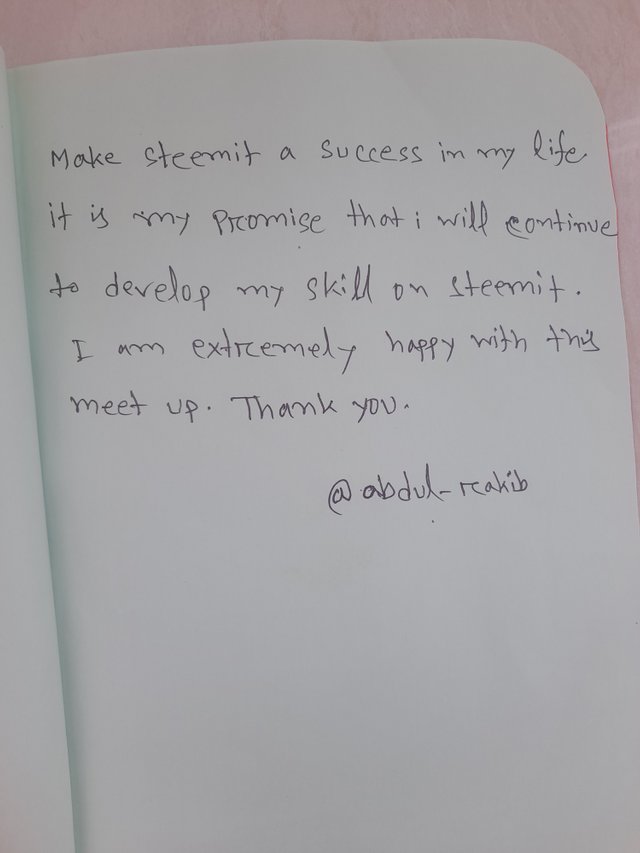 Make steemit a success in my life.
it is my promise that i will continue
to develop my skill on steemit.
I am extremely happy with this
meet up. Thank you.
@abdul-rakib